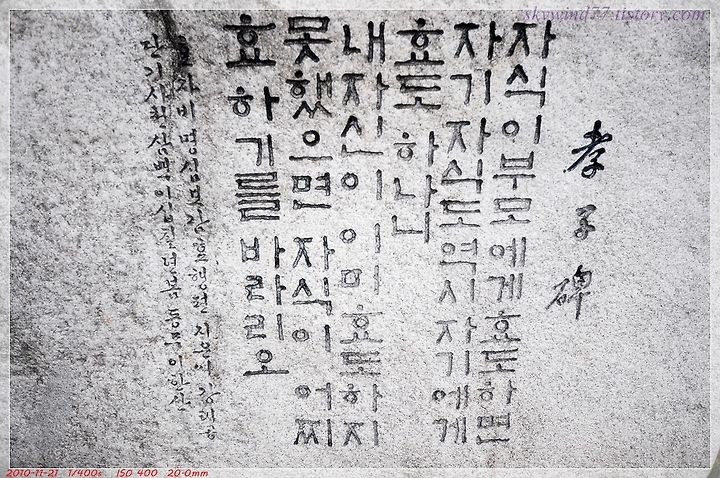 skywind77.tistory.com
孝子碑
자식이 부모에게 효도하면
자기 자식도 역시 자기에게
효도 하나니
내자신이 이미 효도하지
못했으면 자식이 어찌
효하기를 바라리오
효자비 명심보감 효행편 지은이 강태공
단기사천삼백이십
2010-11-21 1/400s ISO 400 20.0mm